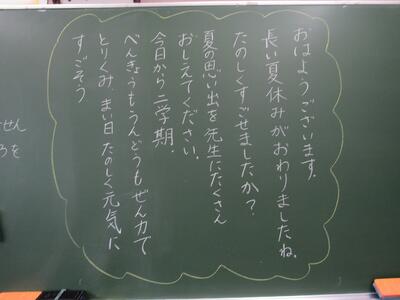 おはようございます。
長い夏休みがおわりましたね。
たのしくすごせましたか?
夏の思い出を先生にたくさん
おしえてください。
今日から二学期。
べんきょうもうんどうもぜん力で
とりくみ、まい日たのしく元気に
すごそう
せん
ろを